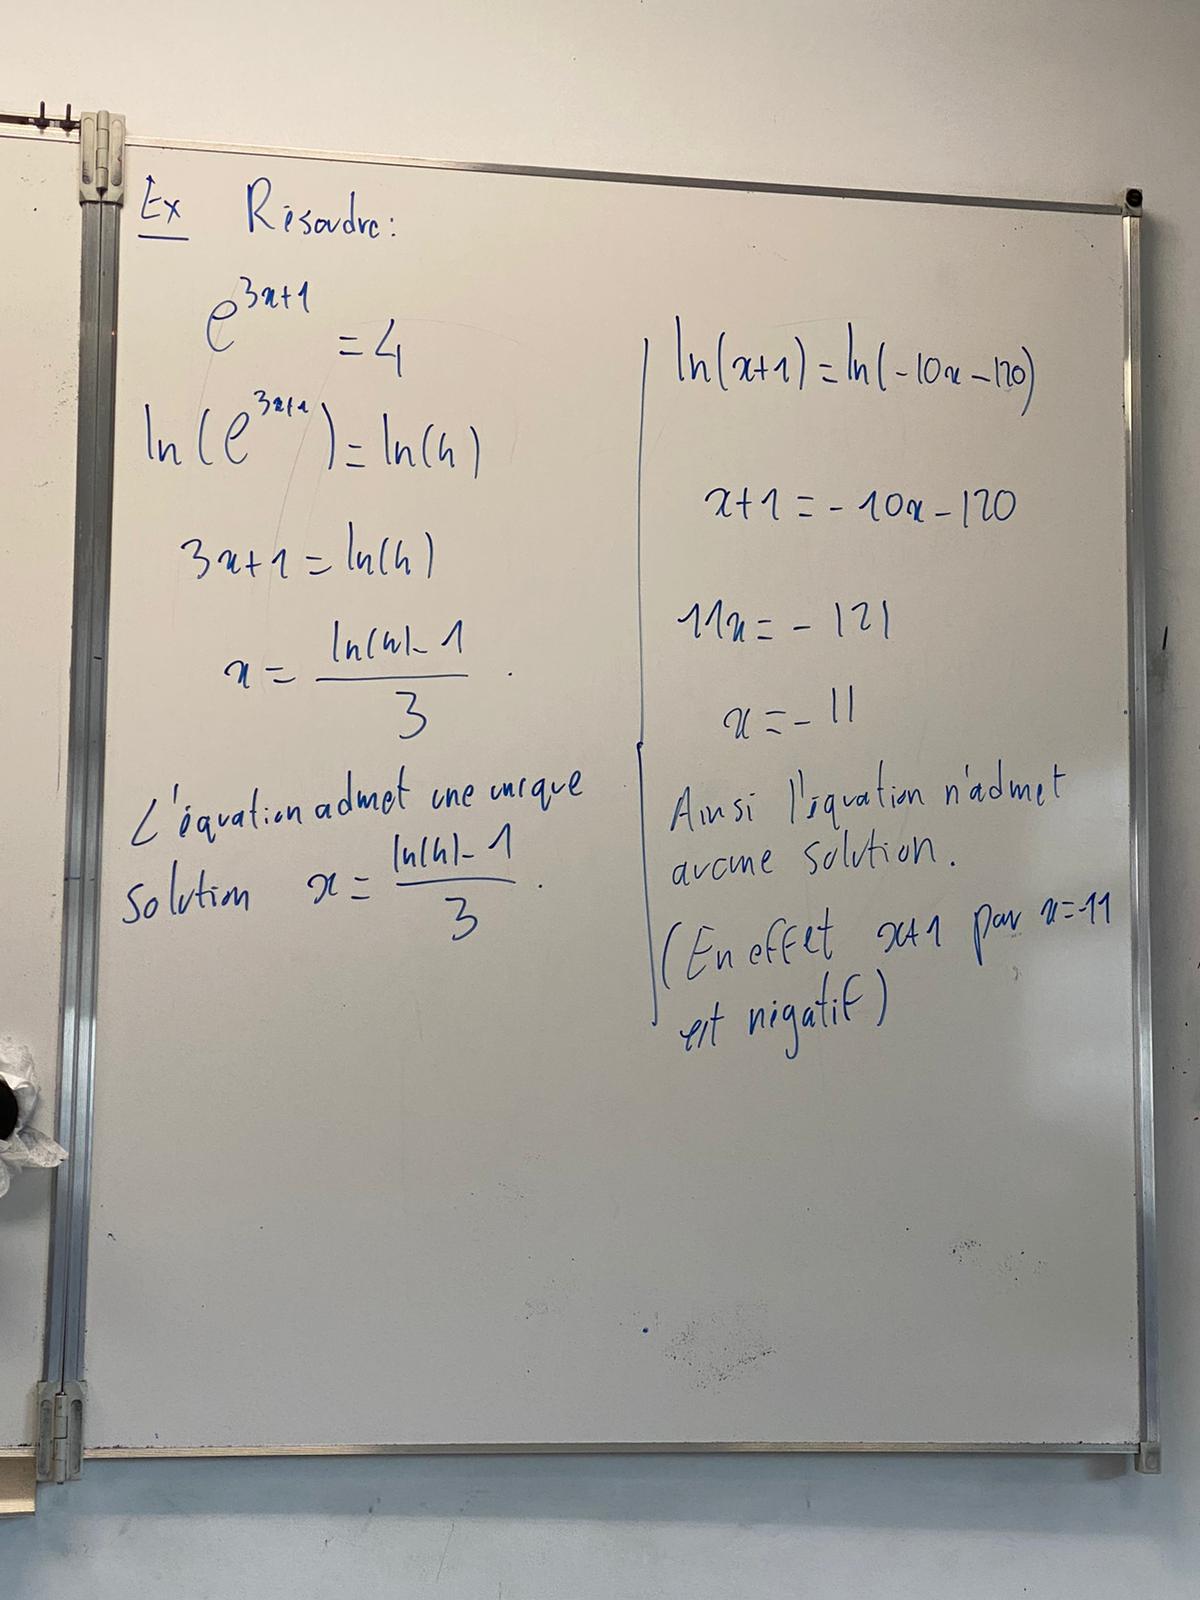 Ex Résoudre:
e^{3x+1} = 4
ln(e^{3x+1}) = ln(4)
3x+1 = ln(4)
x = \frac{ln(4)-1}{3}.
L'équation admet une unique
solution x = \frac{ln(4)-1}{3}.
ln(x+1) = ln(-10x-120)
x+1 = -10x-120
11x = -121
x = -11
Ainsi l'équation n'admet
aucune solution.
(En effet x+1 pour x=-11
est négatif)